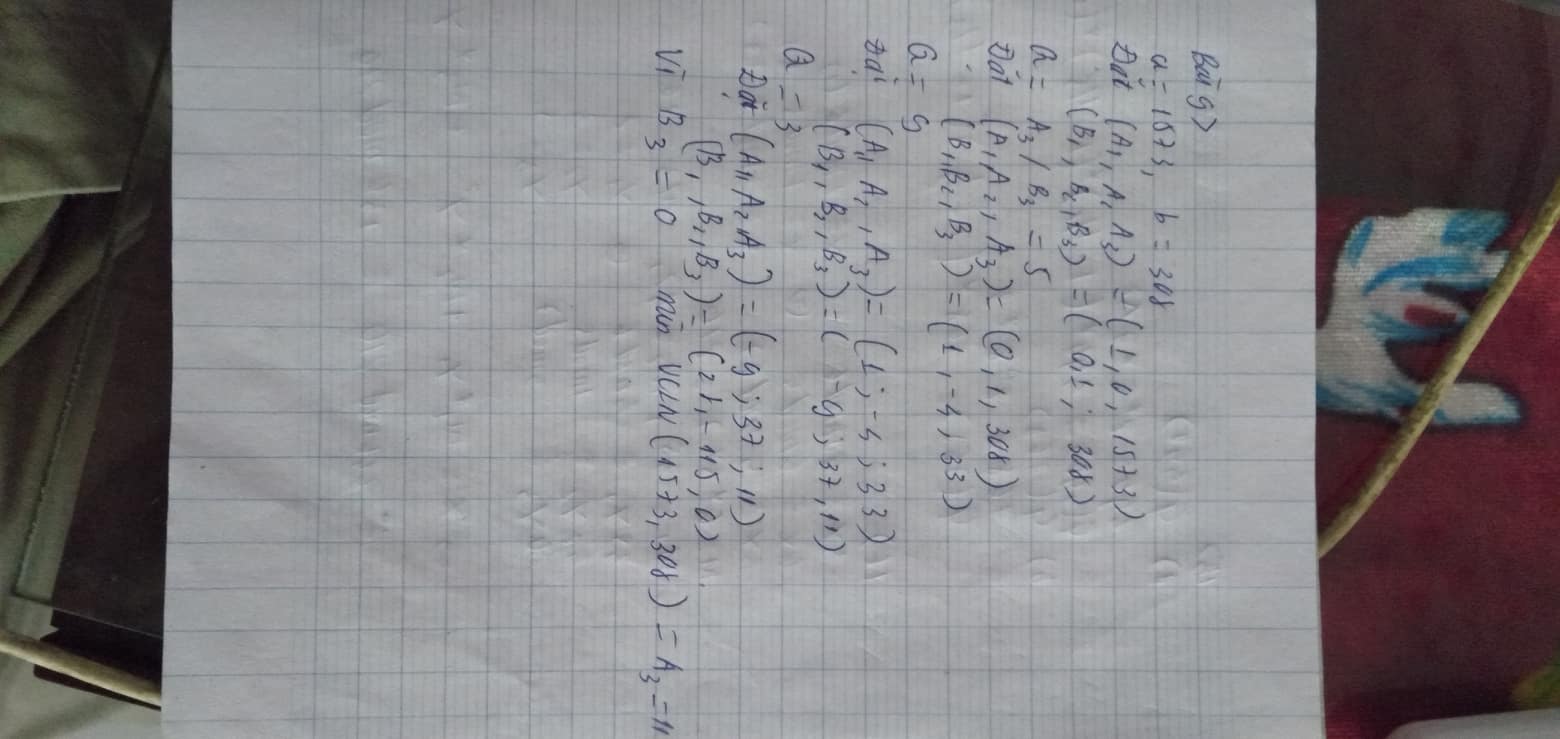 Bài 9)
a = 1573, b = 308
Đặt (A1, A1 A3) = (1, 0, 1573)
(B1, B2, B3) = (0, 1; 308)
Q = A3 / B3 = 5
Đặt (A1 A2, A3) = (0, 1, 308)
(B1, B2, B3) = (1, -5, 33)
Q = 9
Đặt (A1 A1, A3) = (1; -5; 33)
(B1, B1, B3) = (-9; 37, 11)
Q = 3
Đặt (A1, A2 A3) = (-9; 37; 11)
(B1, B1, B3) = (21, -115, 0)
Vì B3 = 0 nên UCLN (1573, 308) = A3 = 11